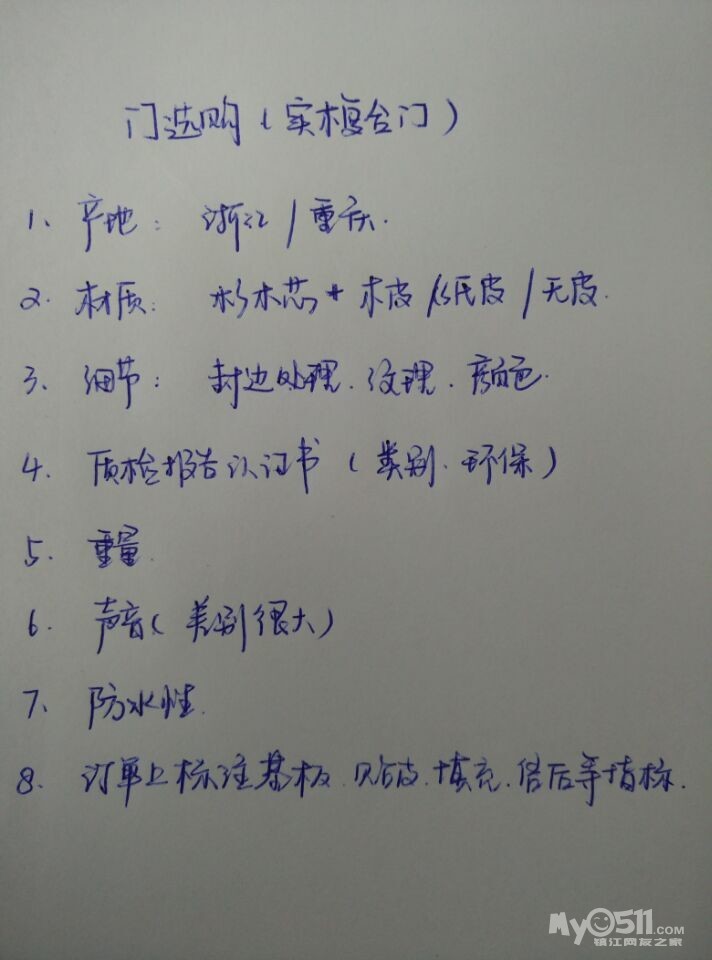 门选购（实木复合门）
1、产地：浙江/重庆.
2. 材质：杉木芯+木皮/纸皮/无皮.
3、细节：封边处理、纹理、颜色.
4、质检报告认证书（类别、环保）
5、重量.
6、声音（差别很大）
7、防水性.
8、订单上标注基板、贴皮、填充、售后等指标.
My0511.COM
镇江网友之家